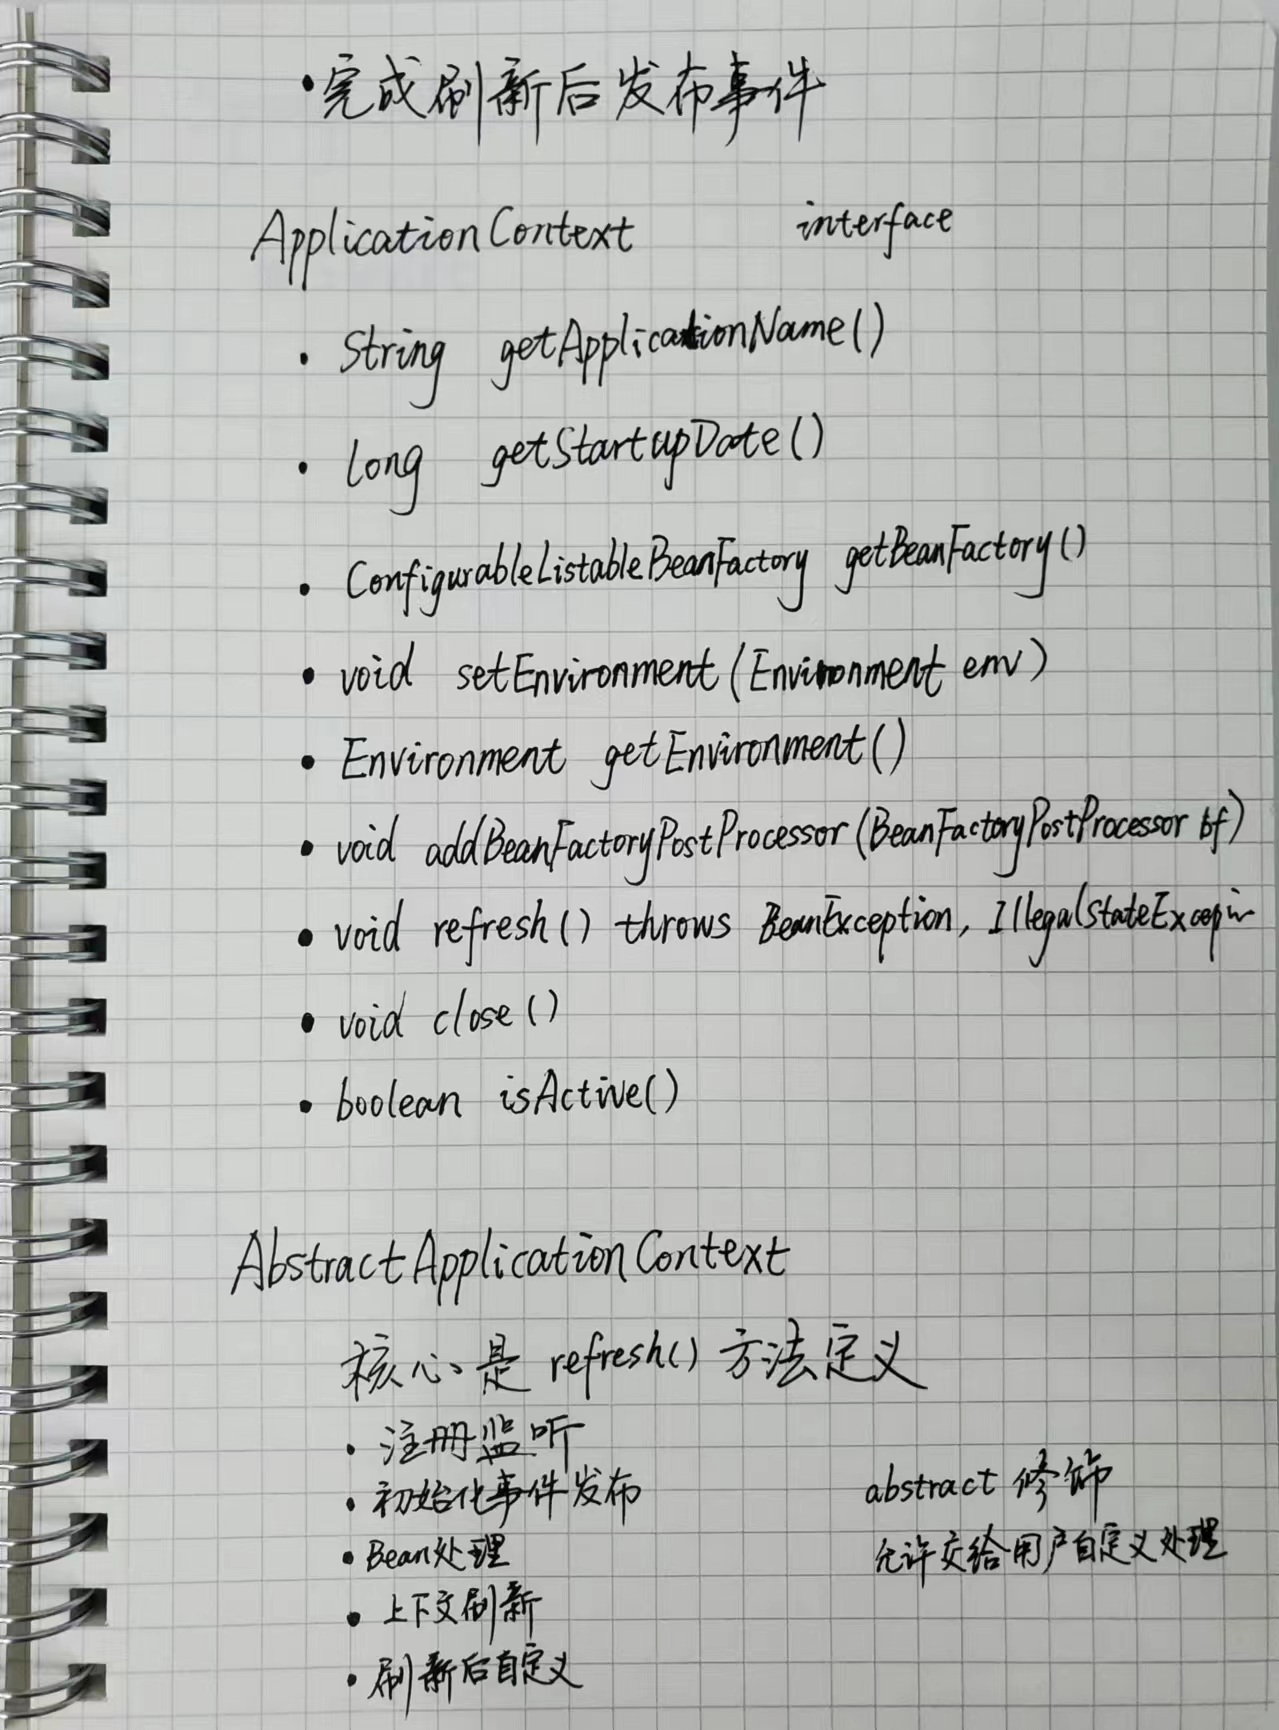 ·完成刷新后发布事件
ApplicationContext interface
· String getApplicationName()
· long getStartupDate()
· ConfigurableListableBeanFactory getBeanFactory()
· void setEnvironment(Environment env)
· Environment getEnvironment()
· void addBeanFactoryPostProcessor(BeanFactoryPostProcessor bf)
· void refresh() throws BeanException, IllegalStateExcepin
· void close()
· boolean isActive()
AbstractApplicationContext
核心是 refresh() 方法定义
· 注册监听
· 初始化事件发布 abstract 修饰
· Bean处理 允许交给用户自定义处理
· 上下文刷新
· 刷新后自定义